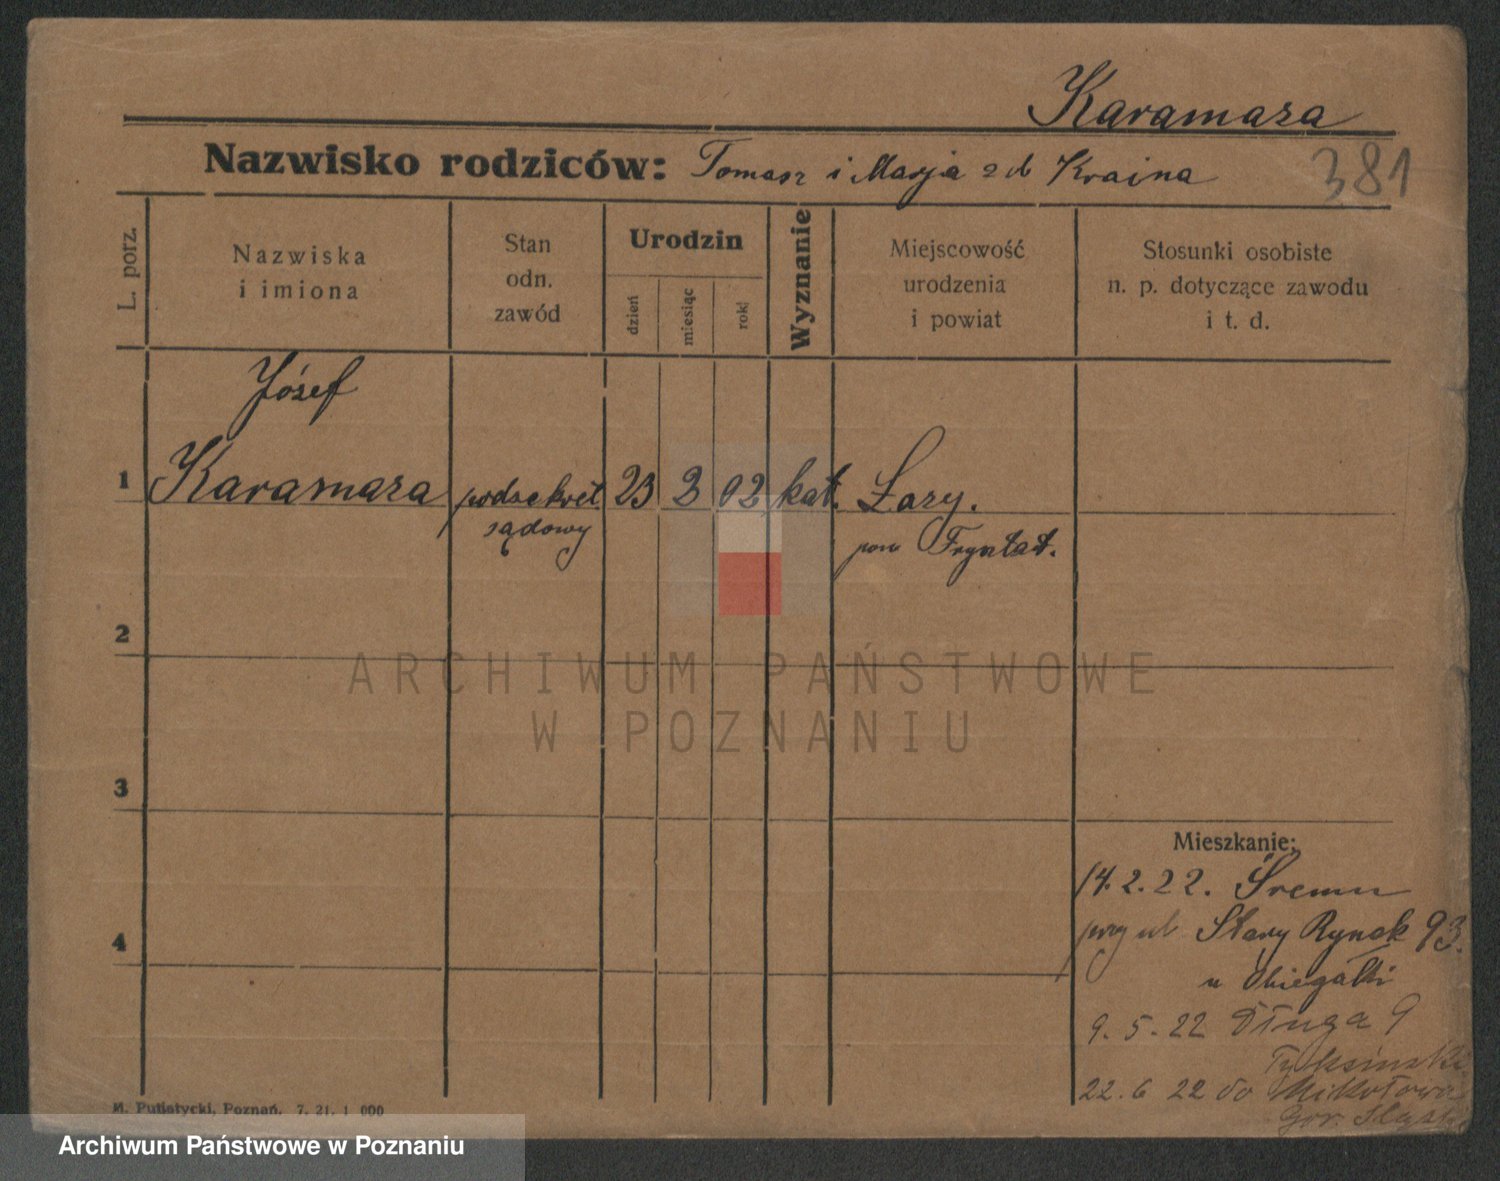 Karamara
Nazwisko rodziców: Tomasz i Marja z d Kraina
381
L. porz.
Nazwiska
i imiona
Stan
odn.
zawód
Urodzin
dzień
miesiąc
rok
Wyznanie
Miejscowość
urodzenia
i powiat
Stosunki osobiste
n. p. dotyczące zawodu
i t. d.
Józef
1 Karamara podsekret 23 2 02 kat. Łazy.
sądowy pow Frysztat.
2
ARCHIWUM PAŃSTWOWE
W POZNANIU
3
Mieszkanie:
14.2.22. Śremu
przy ul Stary Rynek 93.
4
u
9.5.22 Długa 9
22.6 22 do Mikołowa
Gór.
M. Putiatycki, Poznań, 7. 21. 1 000
Archiwum Państwowe w Poznaniu